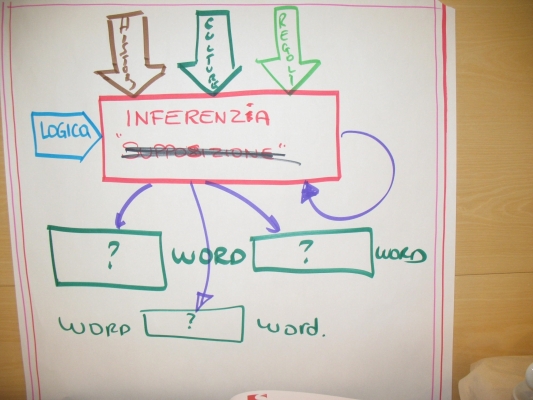 HISTORY
CULTURE
LOGICA
INFERENZIA
"SUPPOSIZIONE"
? WORD ? WORD
WORD ? WORD.